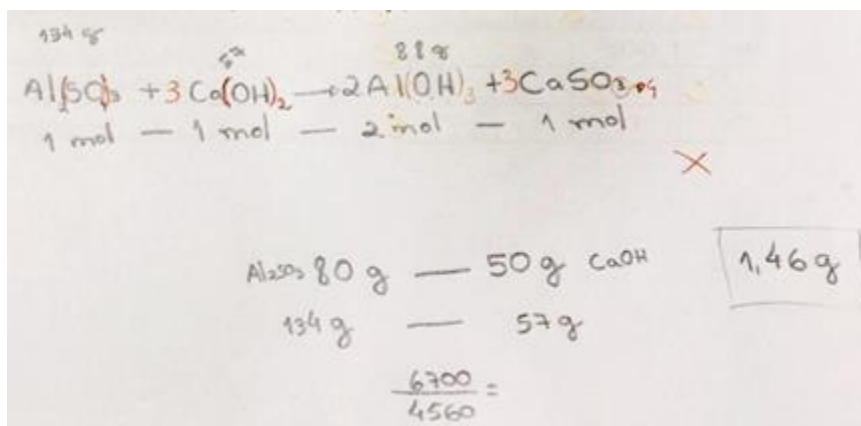 134 g
88 g
Al2(SO4)3 + 3 Ca(OH)2 → 2Al(OH)3 + 3CaSO3 O4
1 mol — 1 mol — 2 mol — 1 mol
X
Al2SO3 80 g — 50 g CaOH 1,46 g
134 g — 57 g
6700
4560 =